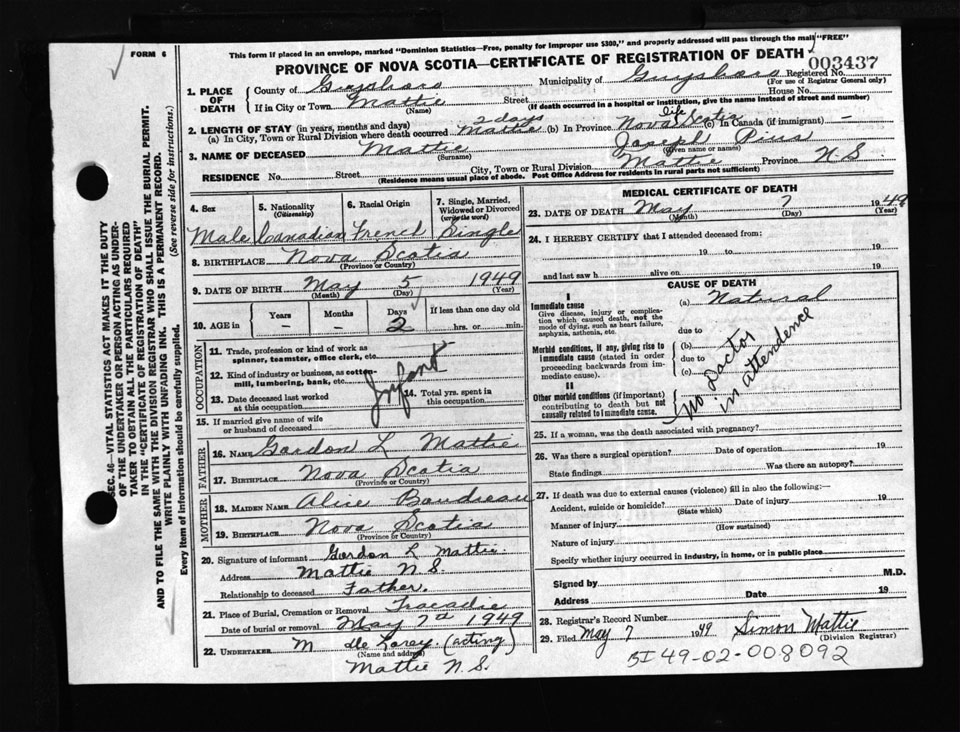 FORM 6
This form if placed in an envelope, marked "Dominion Statistics—Free, penalty for improper use $300," and properly addressed will pass through the mail "FREE"
PROVINCE OF NOVA SCOTIA—CERTIFICATE OF REGISTRATION OF DEATH
003437
Registered No.
(For use of Registrar General only)
1. PLACE OF DEATH
County of Guysboro Municipality of Guysboro
If in City or Town Mattie Street House No.
(Name) (If death occurred in a hospital or institution, give the name instead of street and number)
2. LENGTH OF STAY (in years, months and days)
(a) In City, Town or Rural Division where death occurred 2 days Mattie (b) In Province life Nova Scotia (c) In Canada (if immigrant) —
3. NAME OF DECEASED Mattie Joseph Pius
(Surname) (Given name or names)
RESIDENCE No. Street City, Town or Rural Division Mattie Province N.S.
(Residence means usual place of abode. Post Office Address for residents in rural parts not sufficient)
4. Sex
Male
5. Nationality
(Citizenship)
Canadian
6. Racial Origin
French
7. Single, Married, Widowed or Divorced
(write the word)
Single
8. BIRTHPLACE Nova Scotia
(Province or Country)
9. DATE OF BIRTH May 5 1949
(Month) (Day) (Year)
10. AGE in
Years Months Days If less than one day old
— — 2 hrs. or min.
OCCUPATION
11. Trade, profession or kind of work as spinner, teamster, office clerk, etc.
12. Kind of industry or business, as cotton-mill, lumbering, bank, etc.
Infant
13. Date deceased last worked at this occupation
14. Total yrs. spent in this occupation
15. If married give name of wife or husband of deceased
FATHER
16. NAME Gordon L Mattie
17. BIRTHPLACE Nova Scotia
(Province or Country)
MOTHER
18. MAIDEN NAME Alice Boudreau
19. BIRTHPLACE Nova Scotia
(Province or Country)
20. Signature of informant Gordon L Mattie
Address Mattie N.S.
Relationship to deceased Father.
21. Place of Burial, Cremation or Removal Tracadie
Date of burial or removal May 7th 1949
22. UNDERTAKER M (acting)
(Name and address)
Mattie N.S.
MEDICAL CERTIFICATE OF DEATH
23. DATE OF DEATH May 7 1949
(Month) (Day) (Year)
24. I HEREBY CERTIFY that I attended deceased from:
19 to 19
and last saw h alive on 19
CAUSE OF DEATH
I
Immediate cause
Give disease, injury or complication which caused death, not the mode of dying, such as heart failure, asphyxia, asthenia, etc.
(a) Natural
due to
Morbid conditions, if any, giving rise to immediate cause (stated in order proceeding backwards from immediate cause).
(b)
due to
(c)
II
Other morbid conditions (if important) contributing to death but not causally related to immediate cause.
No Doctor
in attendence
25. If a woman, was the death associated with pregnancy?
26. Was there a surgical operation? Date of operation 19
State findings Was there an autopsy?
27. If death was due to external causes (violence) fill in also the following:—
Accident, suicide or homicide? Date of injury 19
(State which)
Manner of injury
(How sustained)
Nature of injury
Specify whether injury occurred in industry, in home, or in public place
Signed by M.D.
Address Date 19
28. Registrar's Record Number
29. Filed May 7 1949 Simon Mattie
(Division Registrar)
BI 49-02-008092
SEC. 46—VITAL STATISTICS ACT MAKES IT THE DUTY
OF THE UNDERTAKER OR PERSON ACTING AS UNDER-
TAKER TO OBTAIN ALL THE PARTICULARS REQUIRED
IN THE "CERTIFICATE OF REGISTRATION OF DEATH"
AND TO FILE THE SAME WITH THE DIVISION REGISTRAR WHO SHALL ISSUE THE BURIAL PERMIT.
WRITE PLAINLY WITH UNFADING INK. THIS IS A PERMANENT RECORD.
(See reverse side for instructions.)
Every item of information should be carefully supplied.